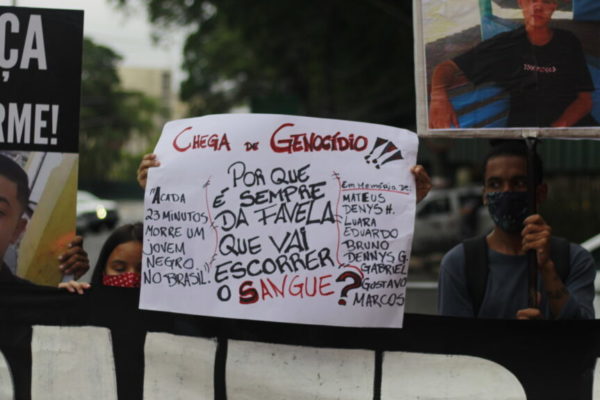 ÇA
RME!
CHEGA DE GENOCÍDIO!!!
"A CADA
23 MINUTOS
MORRE UM
JOVEM
NEGRO
NO BRASIL."
POR QUE
É SEMPRE
DA FAVELA
QUE VAI
ESCORRER
O SANGUE?
EM MEMÓRIA DE:
MATEUS
DENYS H.
LUARA
EDUARDO
BRUNO
DENNYS G.
GABRIEL
GUSTAVO
MARCOS